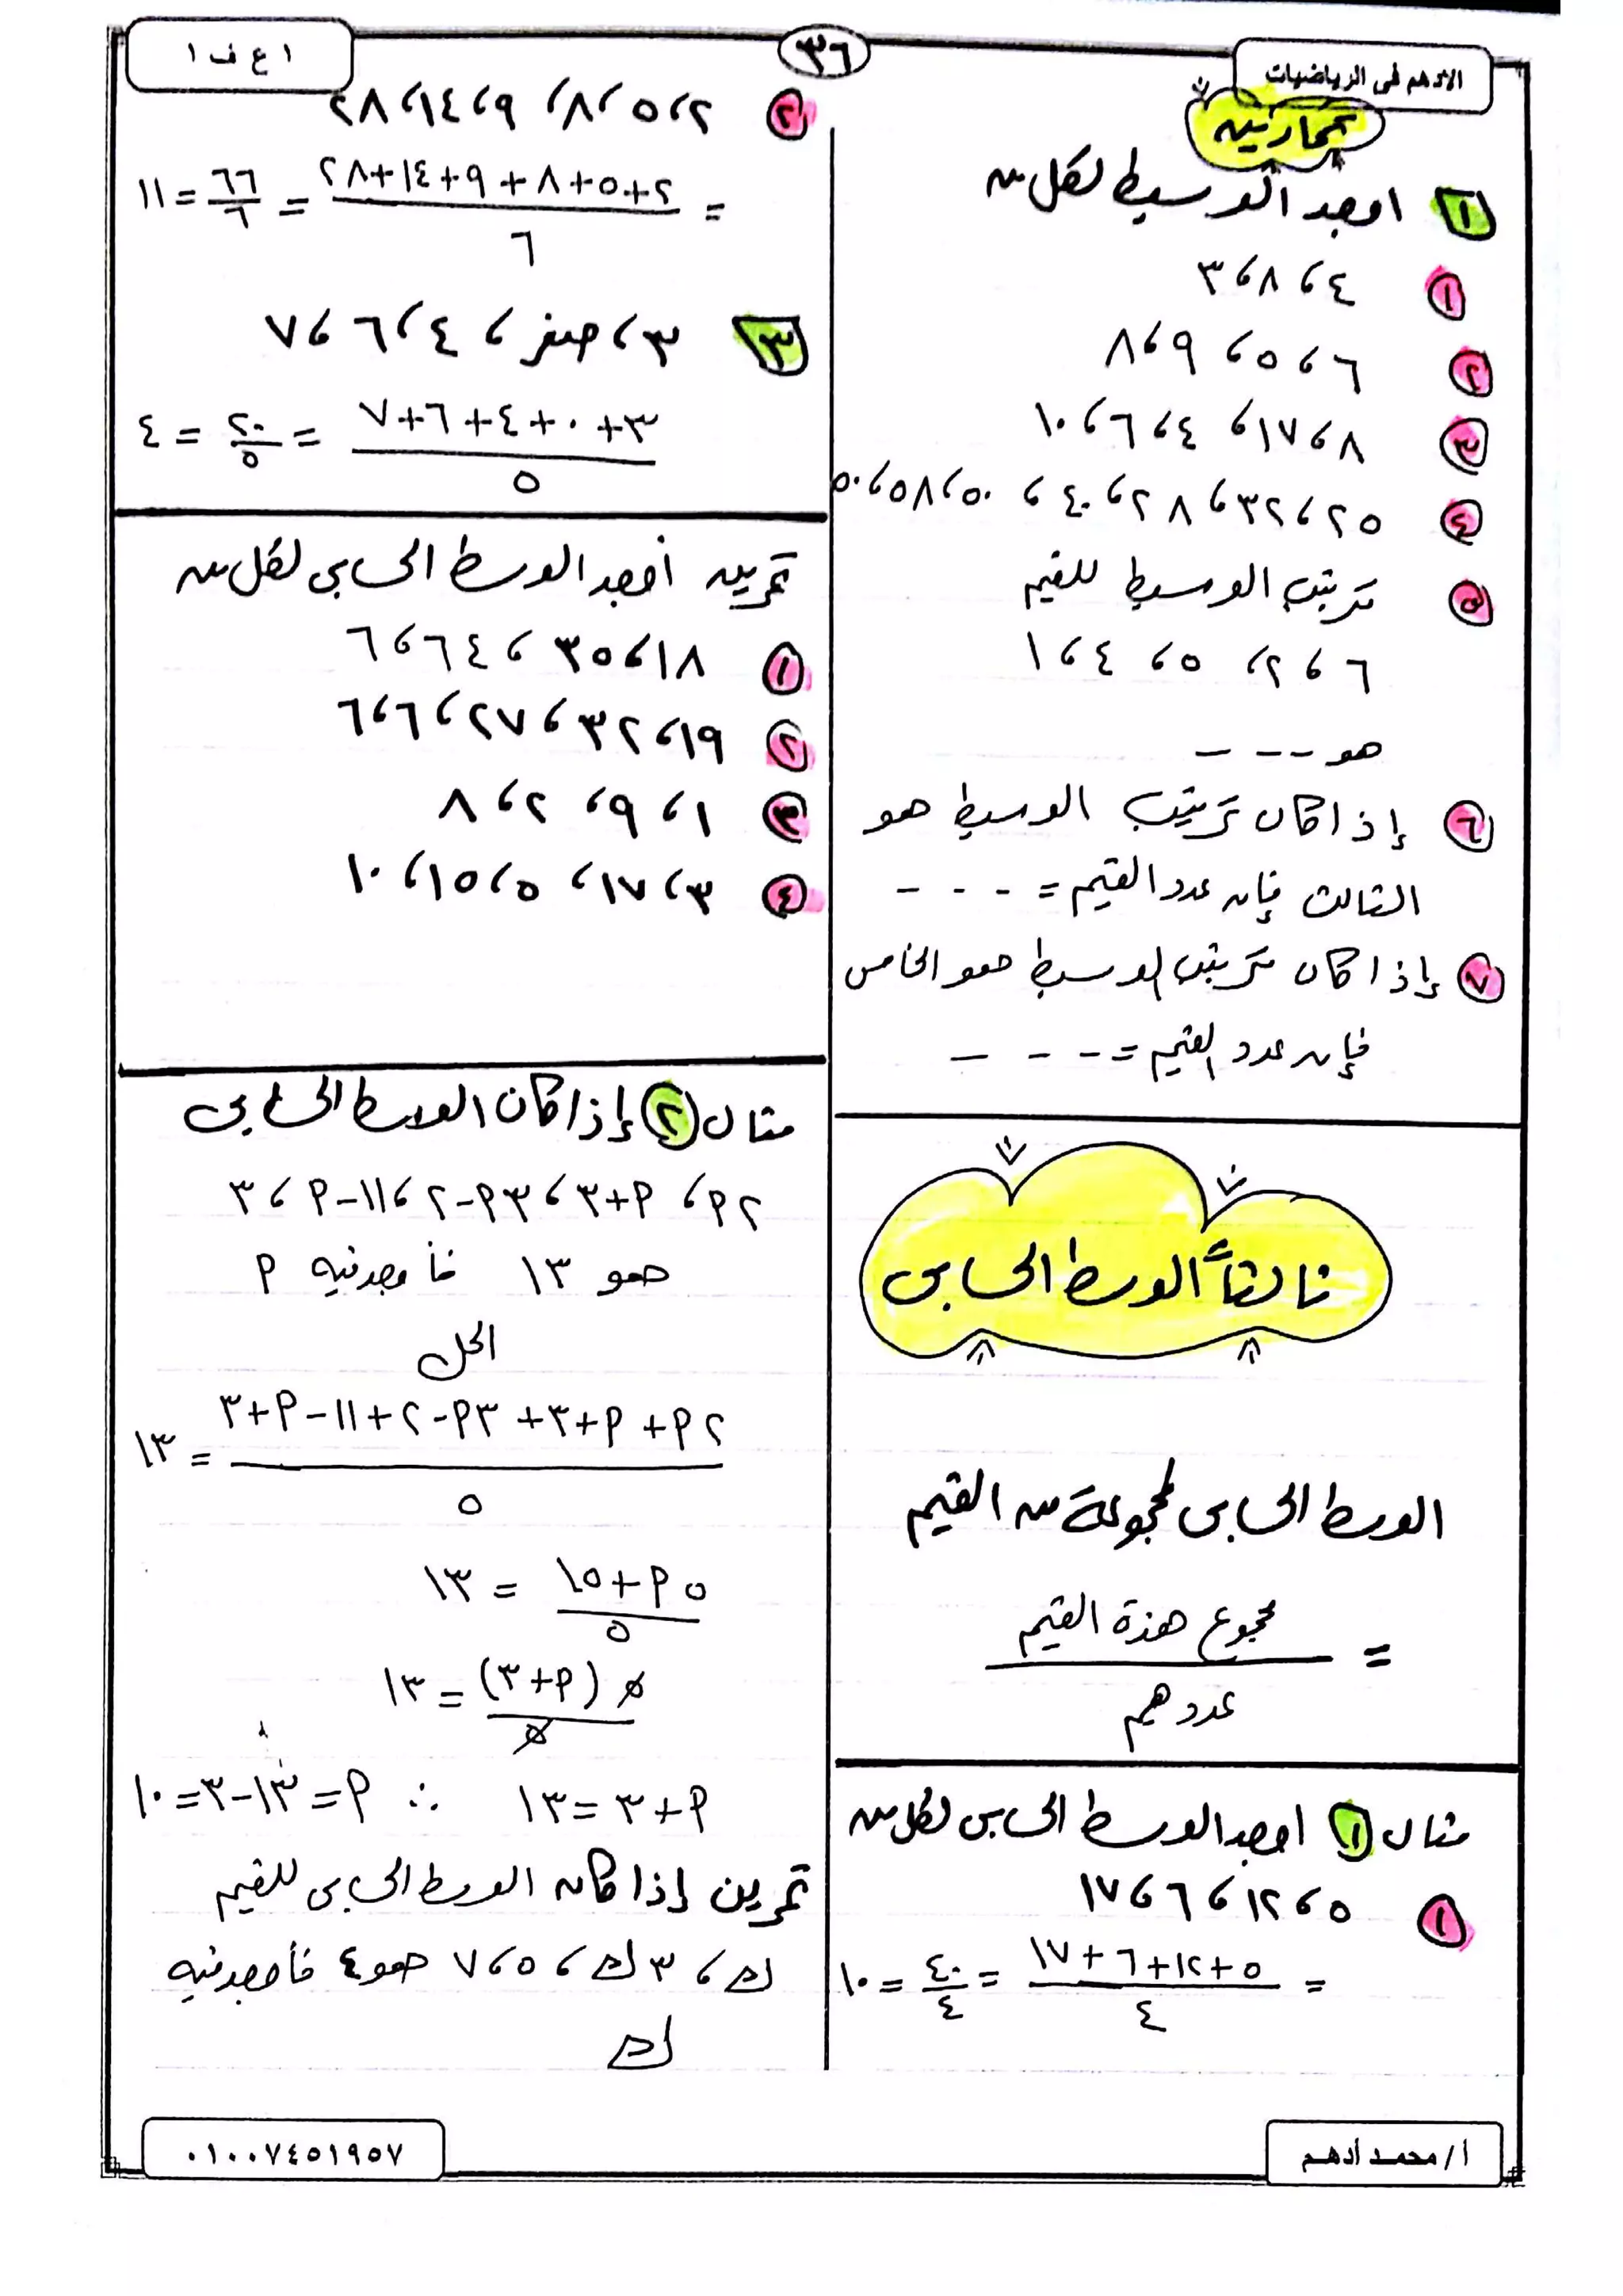 الادهم فى الرياضيات
٣٦
١ ع ف ١
تمارين
١ اوجد الوسيط لكل من
١ ٤ ، ٨ ، ٣
٢ ٦ ، ٥ ، ٩ ، ٨
٣ ٨ ، ١٧ ، ٤ ، ٦ ، ١٠
٤ ٢٥ ، ٣٢ ، ٢٨ ، ٤٠ ، ٥٠ ، ٥٨ ، ٥٠
٥ ترتيب الوسيط للقيم
٦ ، ٢ ، ٥ ، ٤ ، ١
هو - - - -
٦ إذا كان ترتيب الوسيط هو
الثالث فإن عدد القيم = - - - -
٧ إذا كان ترتيب الوسيط هو الخامس
فإن عدد القيم = - - - -
ثالثاً الوسط الحسابى
الوسط الحسابى لمجموعة من القيم
= مجموع هذة القيم
عددهم
مثال ١ اوجد الوسط الحسابى لكل من
١ ٥ ، ١٢ ، ٦ ، ١٧
= ٥+١٢+٦+١٧ / ٤ = ٤٠ / ٤ = ١٠
٢ ٢ ، ٥ ، ٨ ، ٩ ، ١٤ ، ٢٨
= ٢+٥+٨+٩+١٤+٢٨ / ٦ = ٦٦ / ٦ = ١١
٣ ٣ ، صفر ، ٤ ، ٦ ، ٧
٣+٠+٤+٦+٧ / ٥ = ٢٠ / ٥ = ٤
تمرين أوجد الوسط الحسابى لكل من
١ ١٨ ، ٣٥ ، ٦٤ ، ٦
٢ ١٩ ، ٣٢ ، ٢٧ ، ٦ ، ٦
٣ ١ ، ٩ ، ٢ ، ٨
٤ ٣ ، ١٧ ، ٥ ، ١٥ ، ١٠
مثال ٢ إذا كان الوسط الحسابى
٢م ، م+٣ ، ٣م-٢ ، ١١-م ، ٣
هو ١٣ فأوجد قيمة م
الحل
٢م + م+٣ + ٣م-٢ + ١١-م+٣ / ٥ = ١٣
٥م+١٥ / ٥ = ١٣
٥(م+٣) / ٥ = ١٣
م+٣=١٣ ∴ م=١٣-٣=١٠
تمرين إذا كان الوسط الحسابى للقيم
ك ، ٣ك ، ٥ ، ٧ هو ٤ فأوجد قيمة
ك
أ/ محمد أدهم
٠١٠٠٧٤٥١٩٥٧